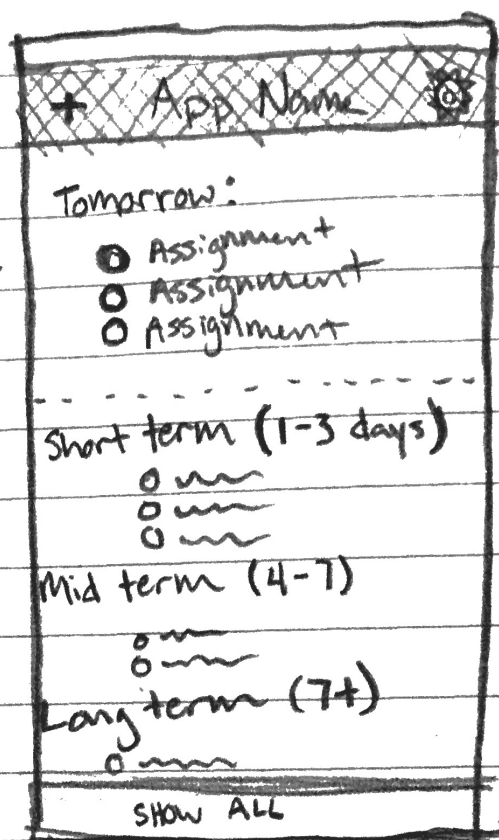 + App Name
Tomorrow:
Assignment
Assignment
Assignment
Short term (1-3 days)
Mid term (4-7)
Long term (7+)
SHOW ALL